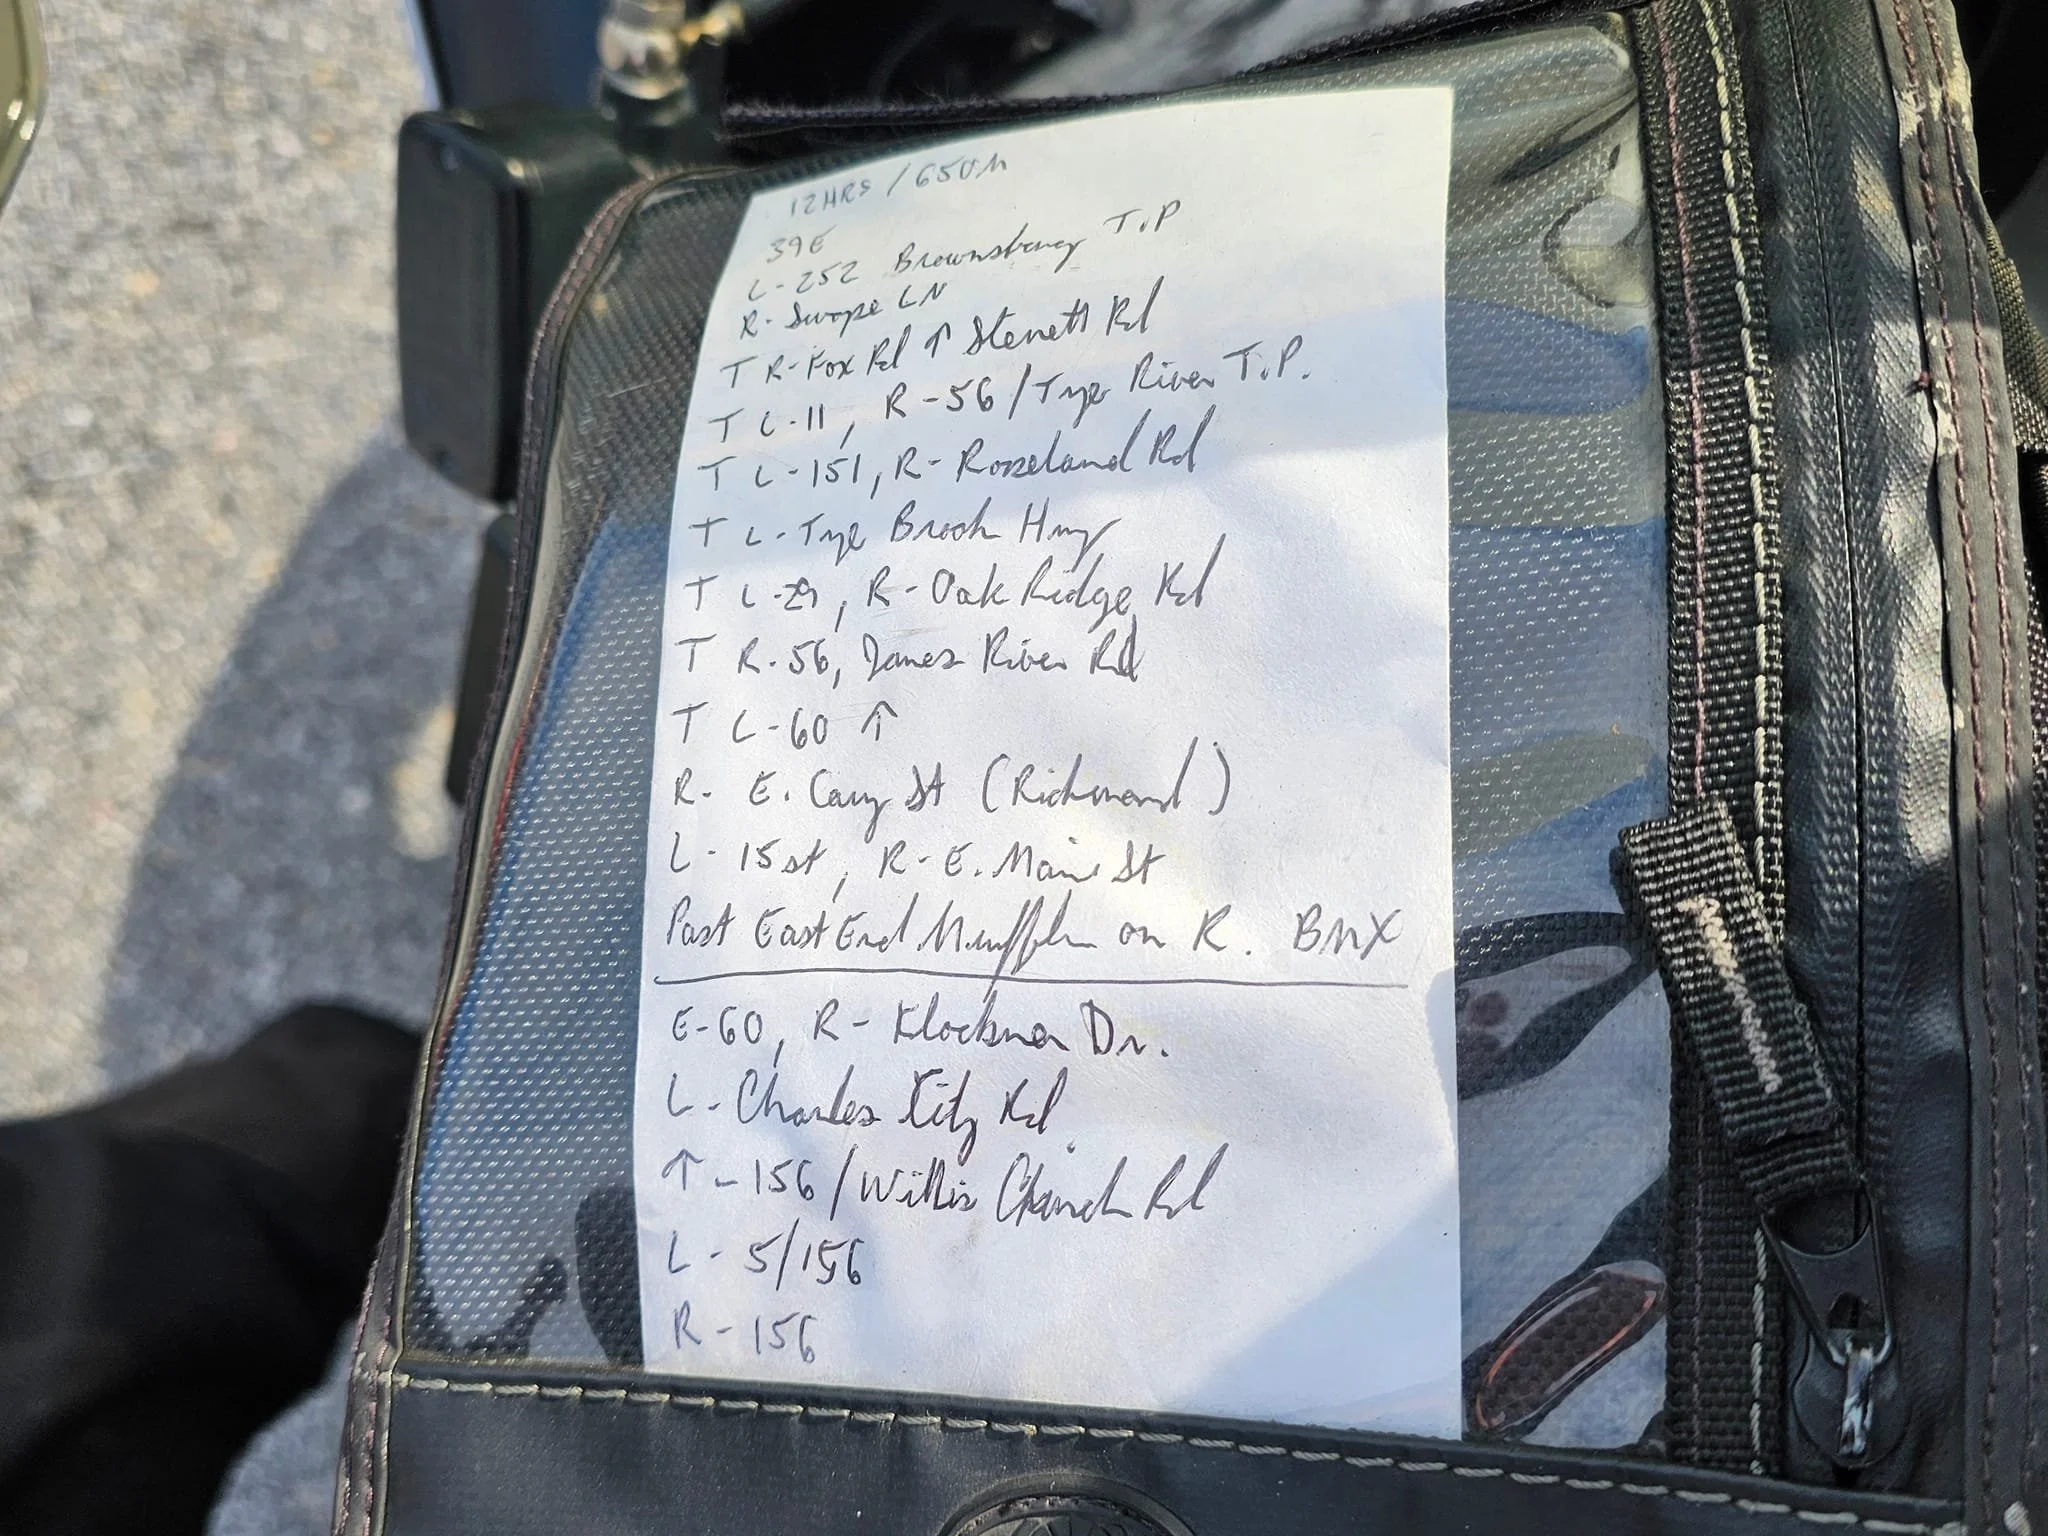 12HRS / 650M
39E
L-252 Brownsburg T.P
R-Swope LN
T R-Fox Rd ↑ Sterrett Rd
T L-11, R-56/Tye River T.P.
T L-151, R-Roseland Rd
T L-Tye Brook Hwy
T L-29, R-Oak Ridge Rd
T R-56, James River Rd
T L-60 ↑
R- E. Cary St (Richmond)
L-15st, R-E. Main St
Past East End Muffler on R. BMX
E-60, R-Klockner Dr.
L-Charles City Rd
↑-156/Willis Church Rd
L-5/156
R-156